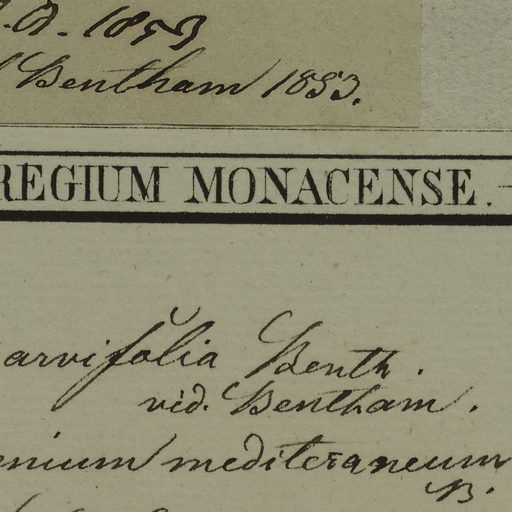 1853
Bentham 1853.
REGIUM MONACENSE.
arvifolia Benth.
vid. Bentham.
enium mediteraneum
B.